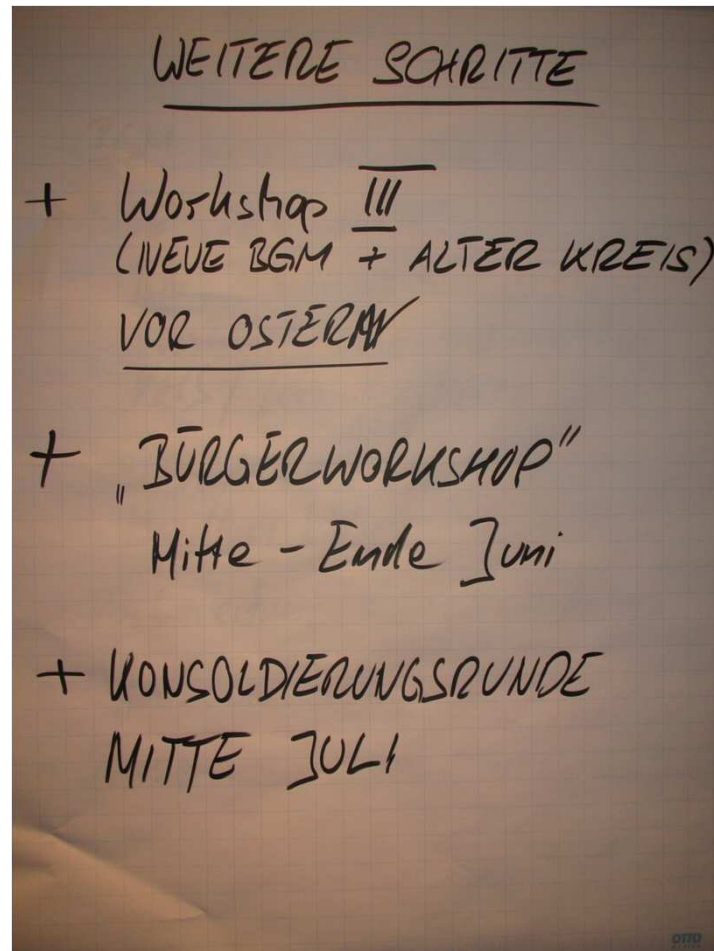 WEITERE SCHRITTE
+ Workshop III
(NEUE BGM + ALTER KREIS)
VOR OSTERN
+ „BÜRGERWORKSHOP"
Mitte - Ende Juni
+ KONSOLDIERUNGSRUNDE
MITTE JULI
OTTO